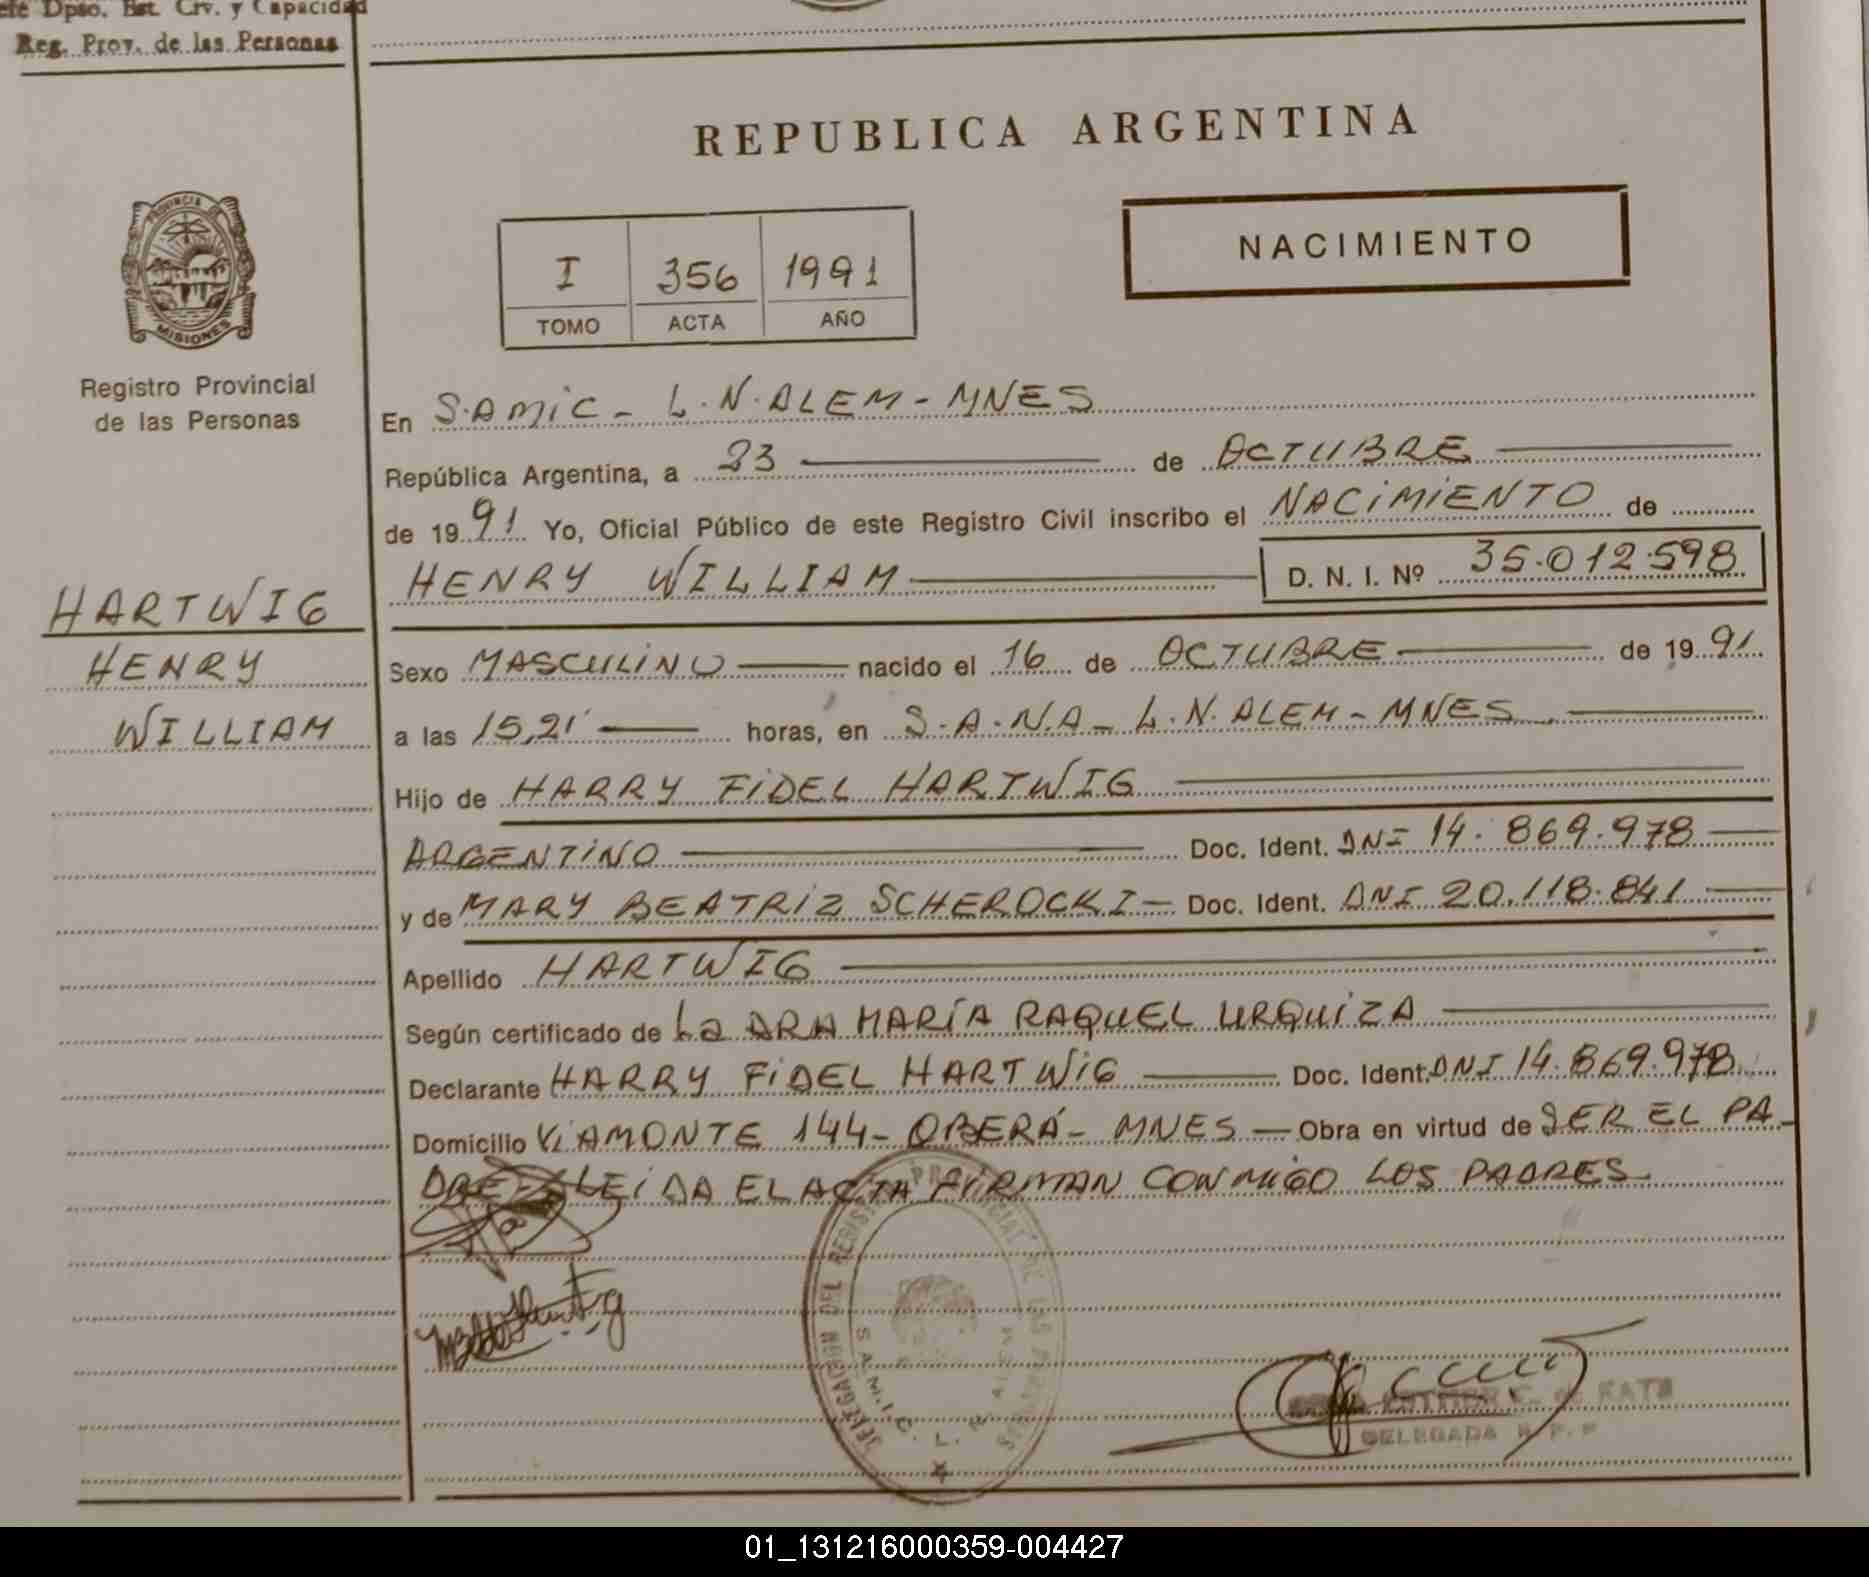 Jefe Dpto. Est. Civ. y Capacidad
Reg. Prov. de las Personas
REPUBLICA ARGENTINA
PROVINCIA DE
MISIONES
Registro Provincial
de las Personas
I 356 1991
TOMO ACTA AÑO
NACIMIENTO
En S.AMIC - L.N. ALEM - MNES
República Argentina, a 23 de OCTUBRE
de 1991 Yo, Oficial Público de este Registro Civil inscribo el NACIMIENTO de
HENRY WILLIAM D. N. I. Nº 35.012.598
HARTWIG
HENRY
WILLIAM
Sexo MASCULINO nacido el 16 de OCTUBRE de 1991
a las 15,21' horas, en S.A.N.A - L.N. ALEM - MNES
Hijo de HARRY FIDEL HARTWIG
ARGENTINO Doc. Ident. DNI 14.869.978
y de MARY BEATRIZ SCHEROCKI - Doc. Ident. DNI 20.118.841
Apellido HARTWIG
Según certificado de La DRA MARÍA RAQUEL URQUIZA
Declarante HARRY FIDEL HARTWIG Doc. Ident. DNI 14.869.978
Domicilio VIAMONTE 144 - OBERÁ - MNES - Obra en virtud de SER EL PA-
DRE - LEIDA EL ACTA FIRMAN CONMIGO LOS PADRES
DELEGACION DEL REGISTRO PROVINCIAL DE LAS PERSONAS
S.A.M.I.C. L. N. ALEM
DELEGADA R.P.P.
01_131216000359-004427